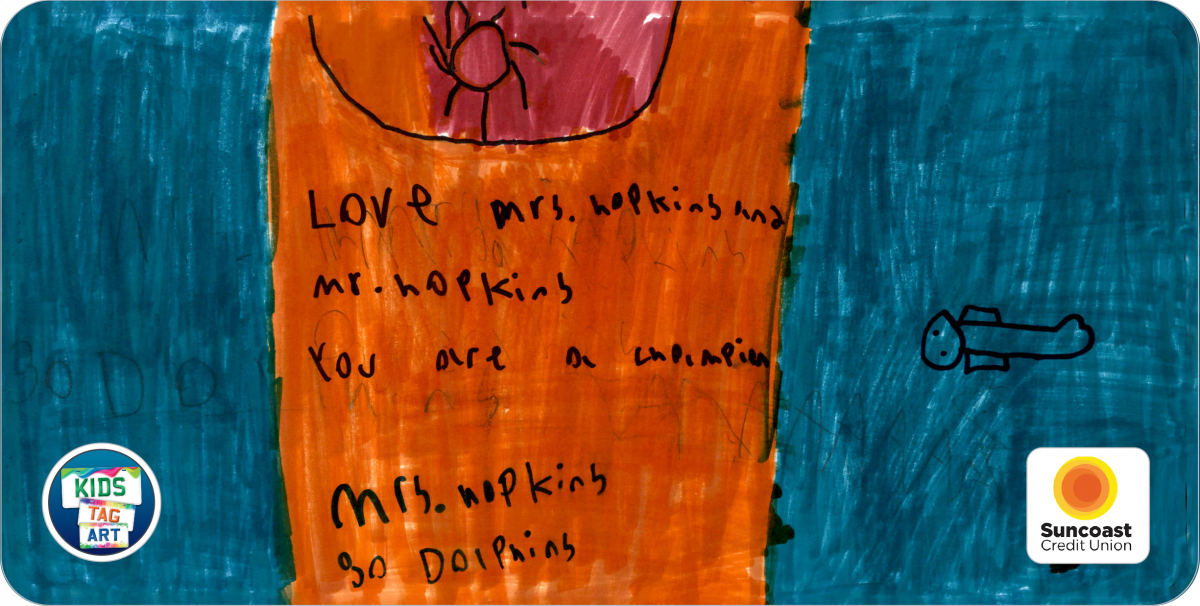 Love mrs. hopkins and
mr. hopkins
You are a champion
Mrs. hopkins
go Dolphins
go Dol
KIDS
TAG
ART
Suncoast
Credit Union